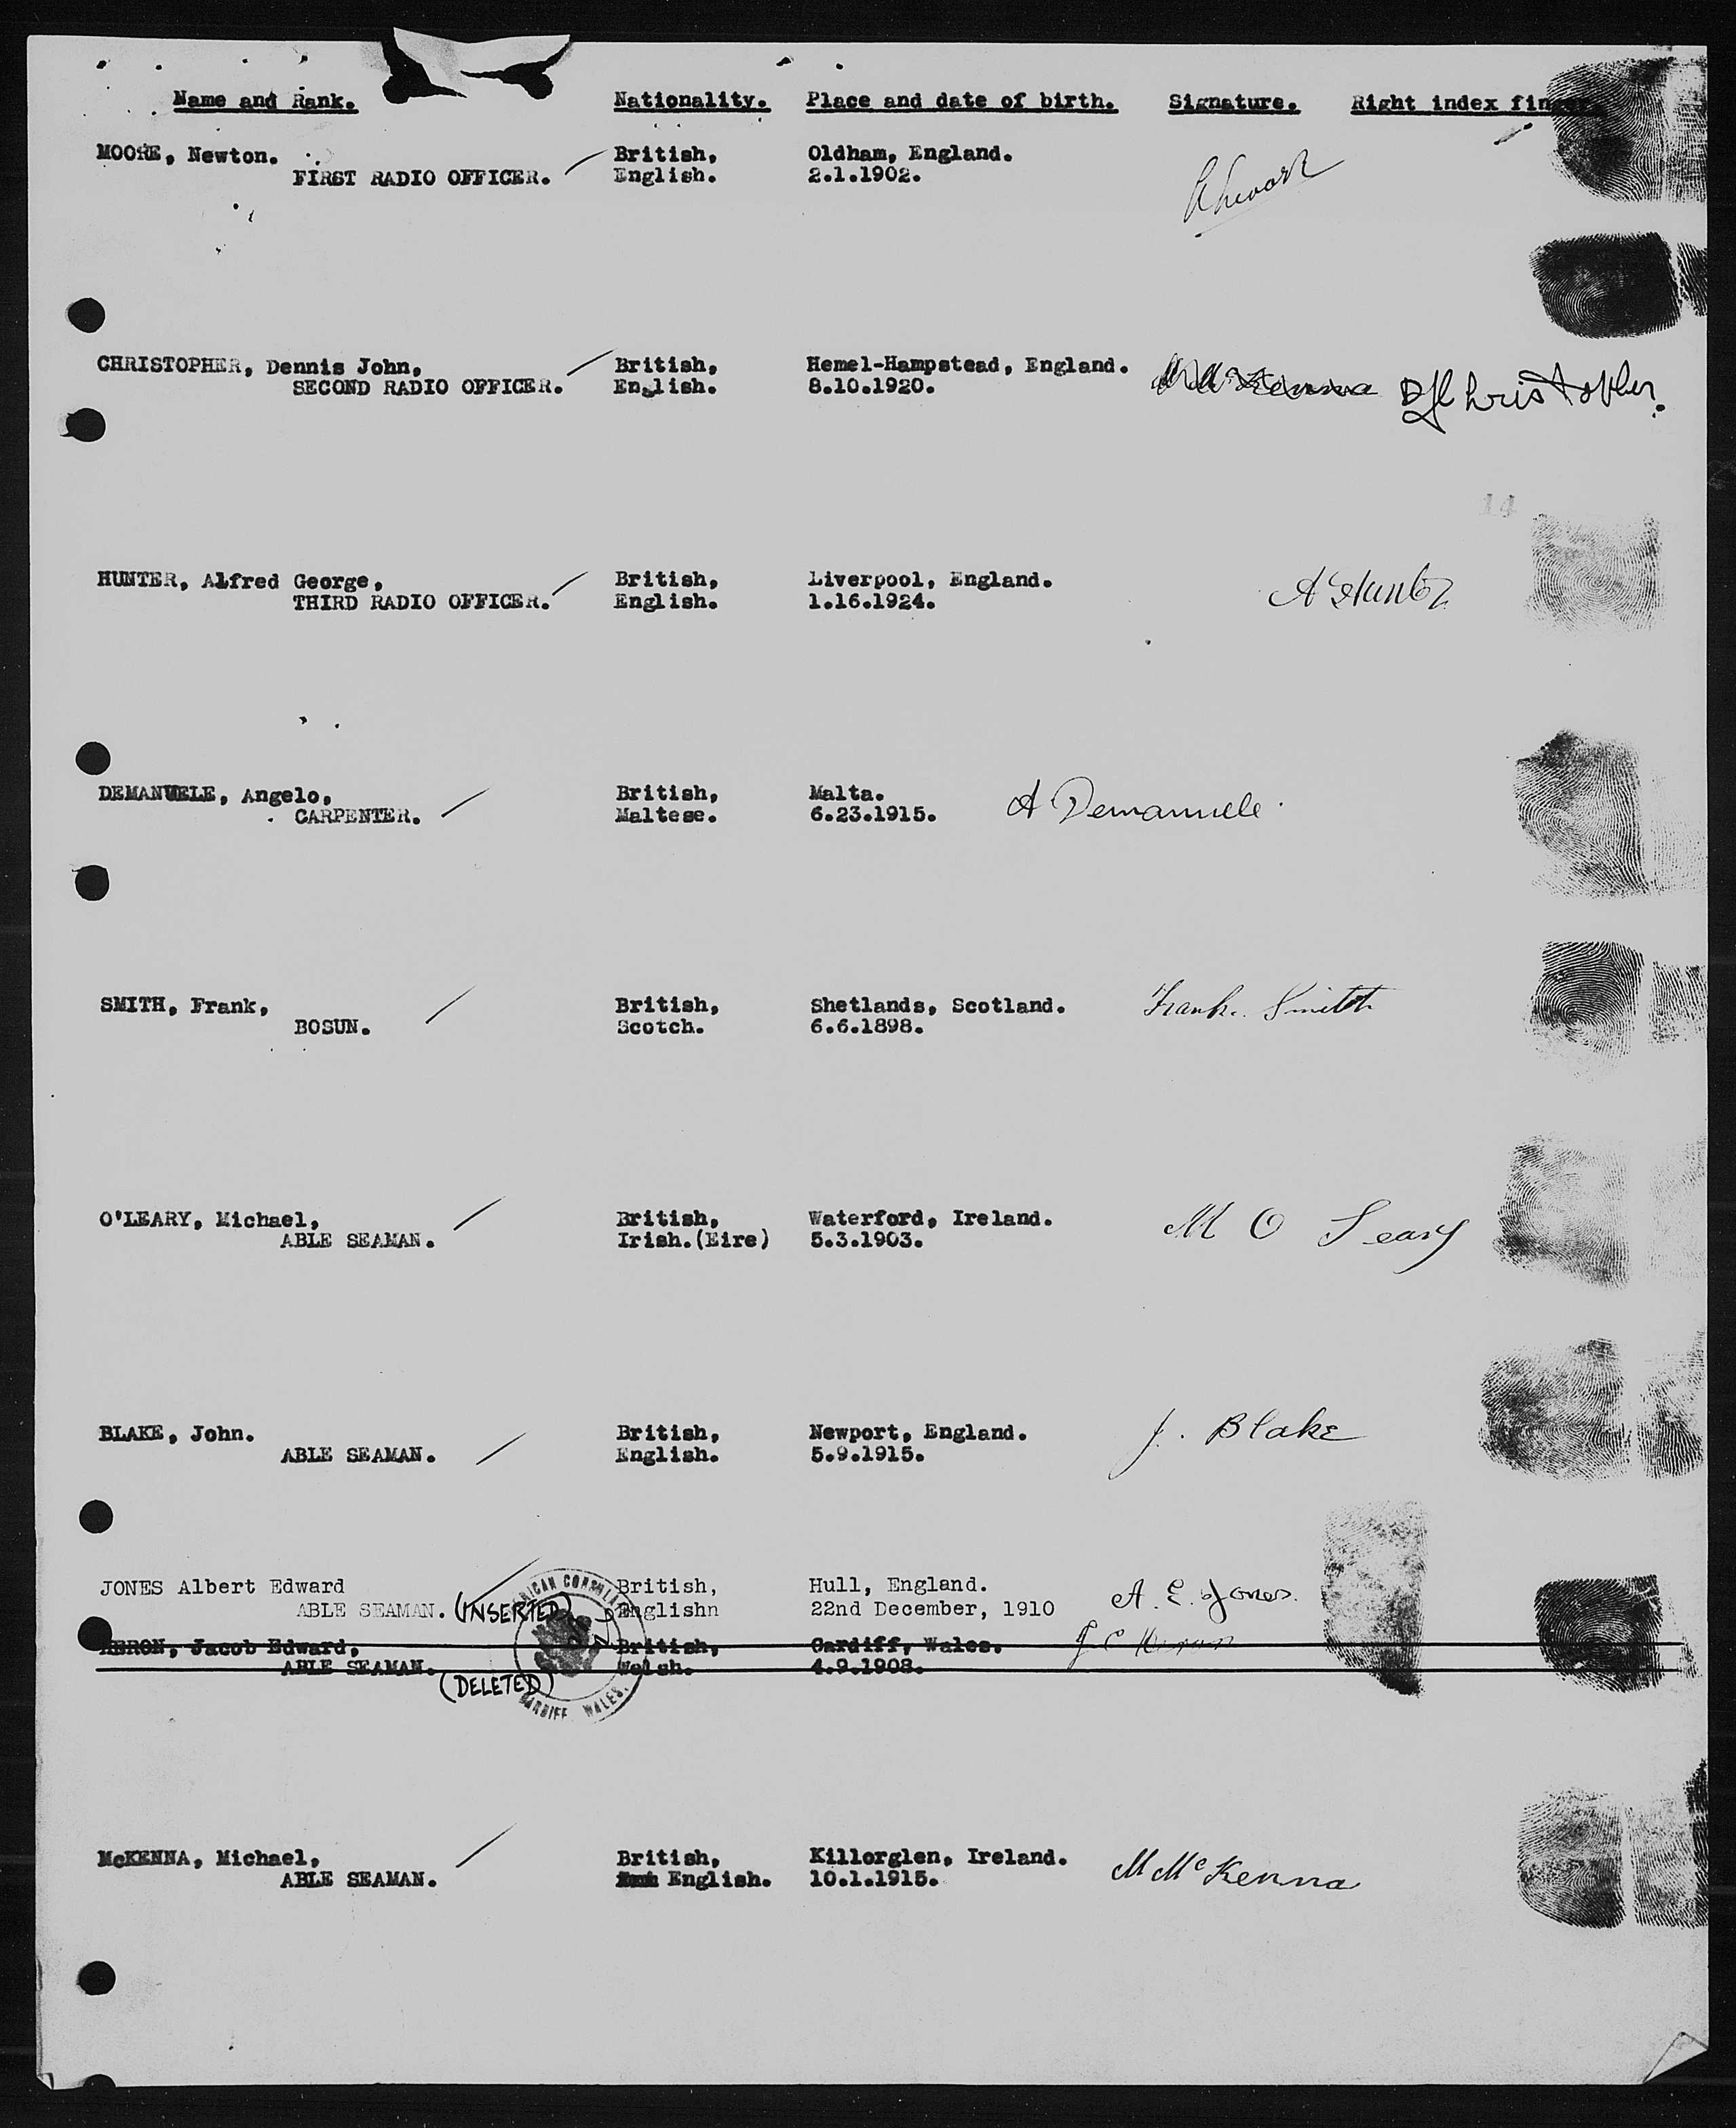 Name and Rank. Nationality. Place and date of birth. Signature. Right index finger.
MOORE, Newton. British, Oldham, England.
FIRST RADIO OFFICER. English. 2.1.1902.
CHRISTOPHER, Dennis John, British, Hemel-Hampstead, England.
SECOND RADIO OFFICER. English. 8.10.1920. M McKenna DJChristopher.
14
HUNTER, Alfred George, British, Liverpool, England. A Hunter
THIRD RADIO OFFICER. English. 1.16.1924.
DEMANUELE, Angelo, British, Malta. A Demanuele.
CARPENTER. Maltese. 6.23.1915.
SMITH, Frank, British, Shetlands, Scotland. Frank Smith
BOSUN. Scotch. 6.6.1898.
O'LEARY, Michael, British, Waterford, Ireland. M O Leary
ABLE SEAMAN. Irish.(Eire) 5.3.1903.
BLAKE, John. British, Newport, England. J. Blake
ABLE SEAMAN. English. 5.9.1915.
JONES Albert Edward British, Hull, England. A. E. Jones.
ABLE SEAMAN. (INSERTED) Englishn 22nd December, 1910
Jacob Edward, British, Cardiff, Wales.
ABLE SEAMAN. Welsh. 4.9.1908.
(DELETED)
AMERICAN CONSULATE CARDIFF, WALES.
McKENNA, Michael, British, Killorglen, Ireland. M McKenna
ABLE SEAMAN. English. 10.1.1915.